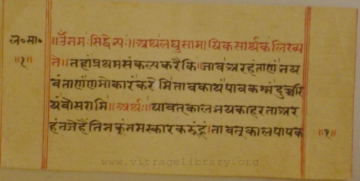 ल॰सा॰
॥उँनमःसिद्धेभ्यः॥अथलघुसामायिकसार्थकलिख्य
ते॥तहांप्रथमसंकल्पकरैकि॥जावअरहंताणंनय
वंताणंणमोकारंकरेमितावकायंपावकम्मंदुच्चरि
यंवोसरामि॥अर्थः॥यावत्कालनयकाहरताअर
हंतजेहैंतिनकूंनमस्कारकरूंहूं।तावत्कालपापक
॥१॥
॥१॥
www.vitragelibrary.org